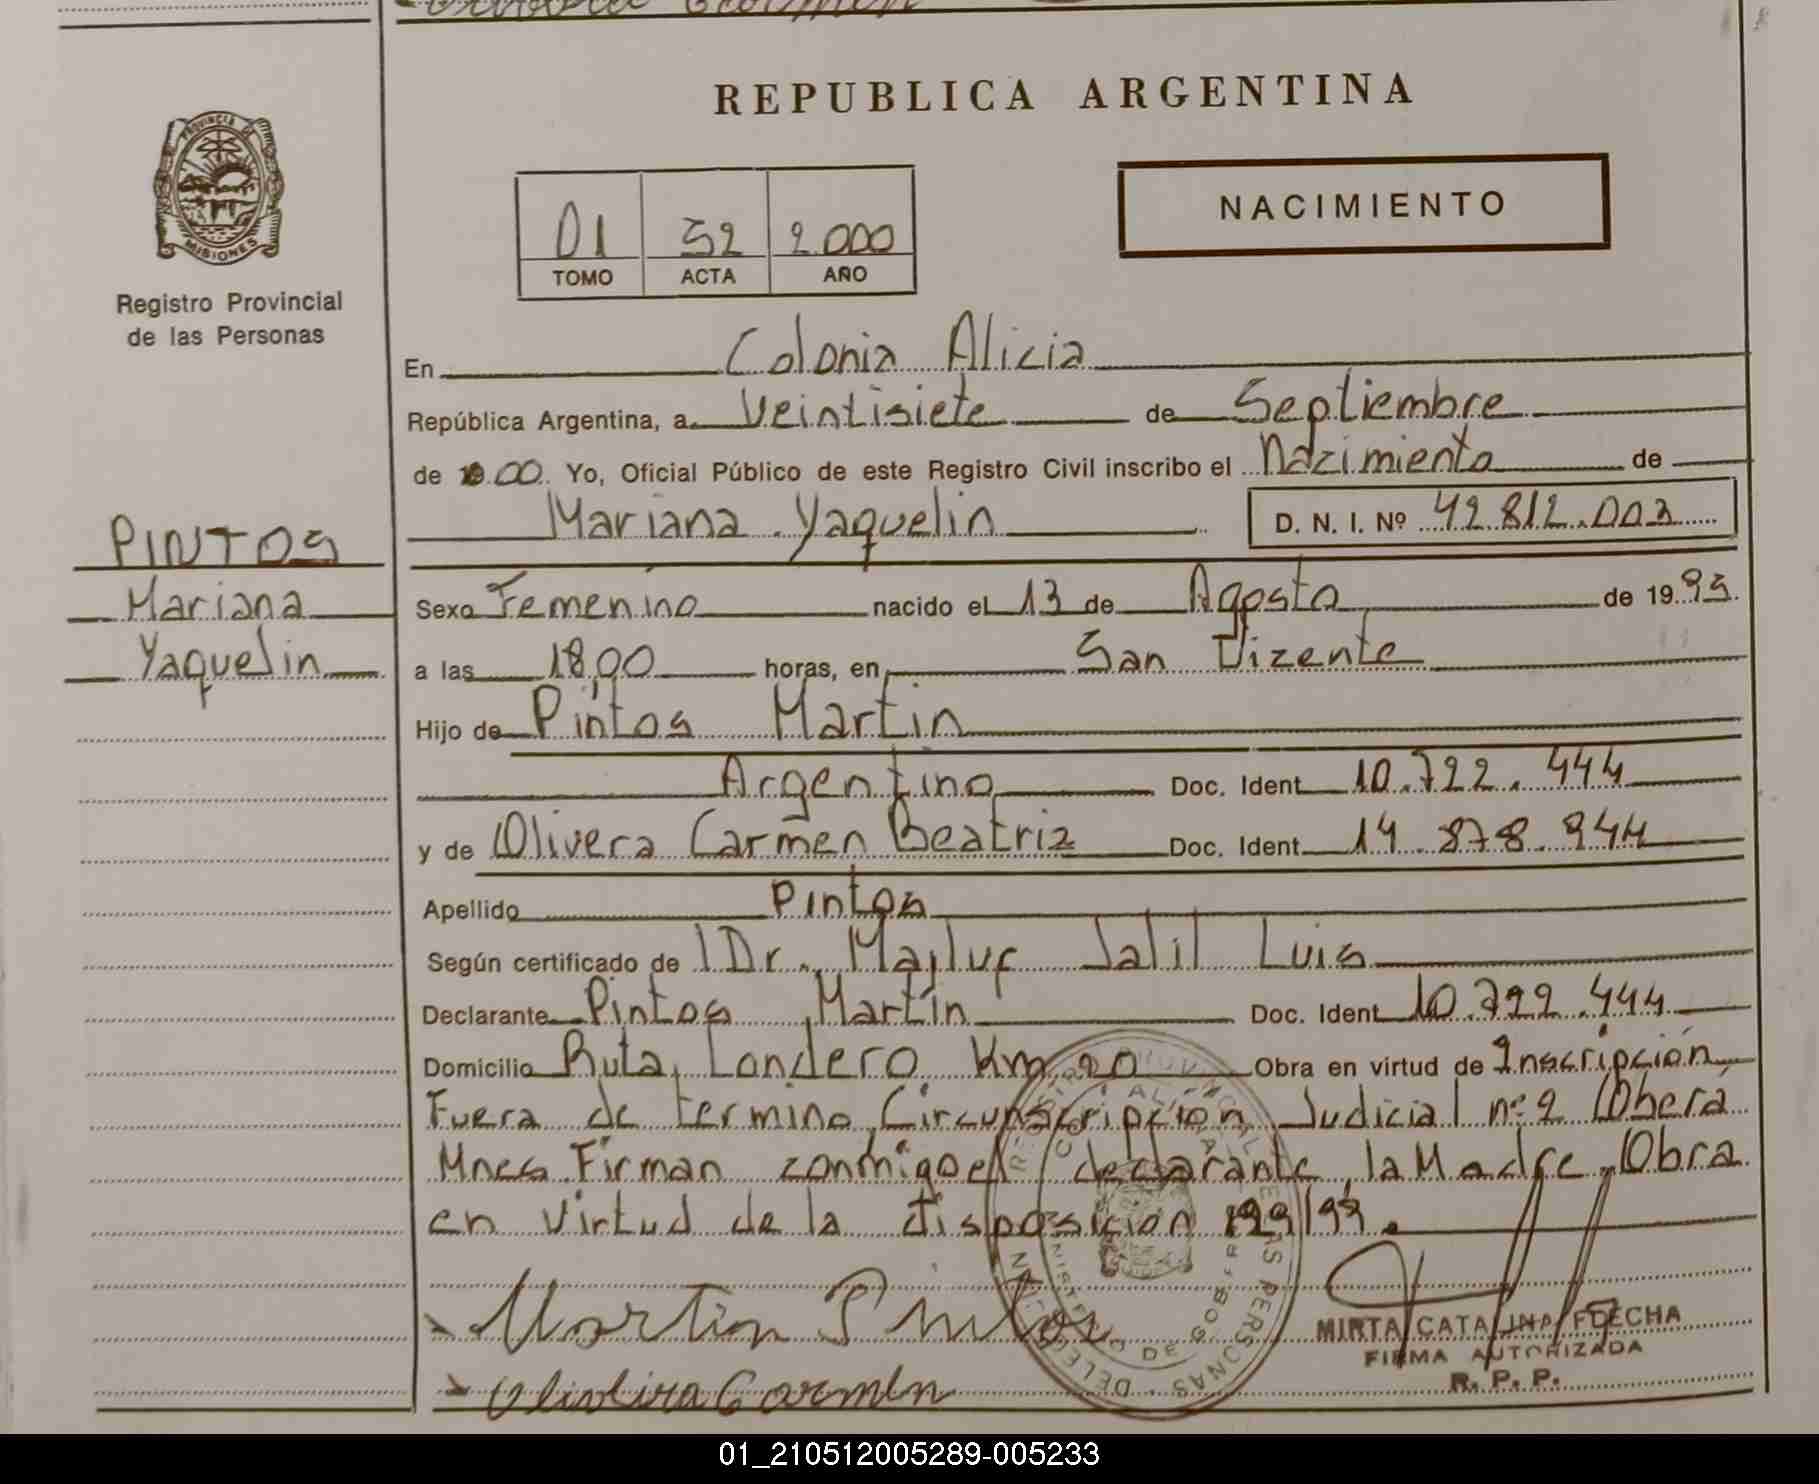 REPUBLICA ARGENTINA
PROVINCIA DE
MISIONES
Registro Provincial
de las Personas
NACIMIENTO
01 52 2.000
TOMO ACTA AÑO
En Colonia Alicia
República Argentina, a Veintisiete de Septiembre
de 00 Yo, Oficial Público de este Registro Civil inscribo el Nacimiento de
Mariana Yaquelin D. N. I. Nº 42.812.003
PINTOS
Mariana
Yaquelin
Sexo Femenino nacido el 13 de Agosto de 1999.
a las 18,00 horas, en San Vicente
Hijo de Pintos Martin
Argentino Doc. Ident 10.722.444
y de Olivera Carmen Beatriz Doc. Ident 14.878.944
Apellido Pintos
Según certificado de Dr. Majluf Jalil Luis
Declarante Pintos Martín Doc. Ident 10.722.444
Domicilio Ruta Londero Km 20 Obra en virtud de Inscripción
Fuera de termino Circunscripción Judicial nº 2 Oberá
Mnes. Firman conmigo el declarante, la Madre, Obra
en virtud de la disposicion 199/99.
Martin Pintos
MIRTA CATALINA FLECHA
FIRMA AUTORIZADA
R. P. P.
Oliveira Carmen
01_210512005289-005233